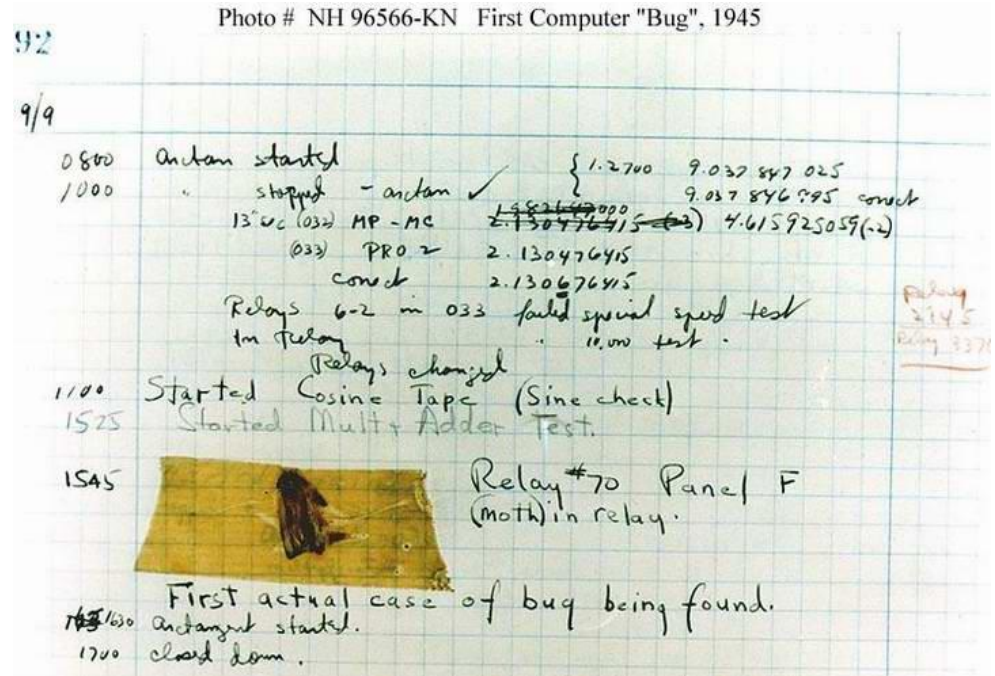 Photo # NH 96566-KN First Computer "Bug", 1945
92
9/9
0800 arctan started { 1.2700 9.037 847 025
1000 " stopped - arctan ✓ 9.037 846 795 correct
13"uc (032) MP - MC 1.982647000 2.130476415 (-3) 4.615925059(-2)
(033) PRO 2 2.130476415
correct 2.130676415
Relays 6-2 in 033 failed special speed test
In Relay " 10,000 test.
Relay
2145
Relay 3370
Relays changed
1100 Started Cosine Tape (Sine check)
1525 Started Mult+ Adder Test.
1545 Relay #70 Panel F
(moth) in relay.
First actual case of bug being found.
1630 arctangent started.
1700 closed down.